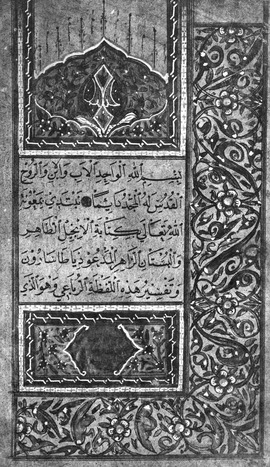 بسم الله الواحد الاب وابن والروح
القدس له المجد دايما نبتدي بعون
الله تعالى كتابة الانجيل الطاهر
والبستان الزاهر المدعو دياطاسارون
وتفسير هذه اللفظة الرباعي وهو الذي